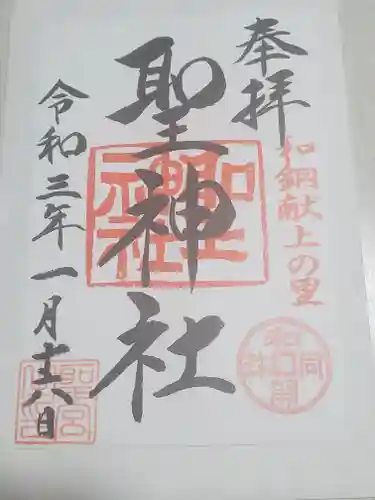 奉拝
和銅献上の里
聖神社
令和三年一月十六日
和同開珎